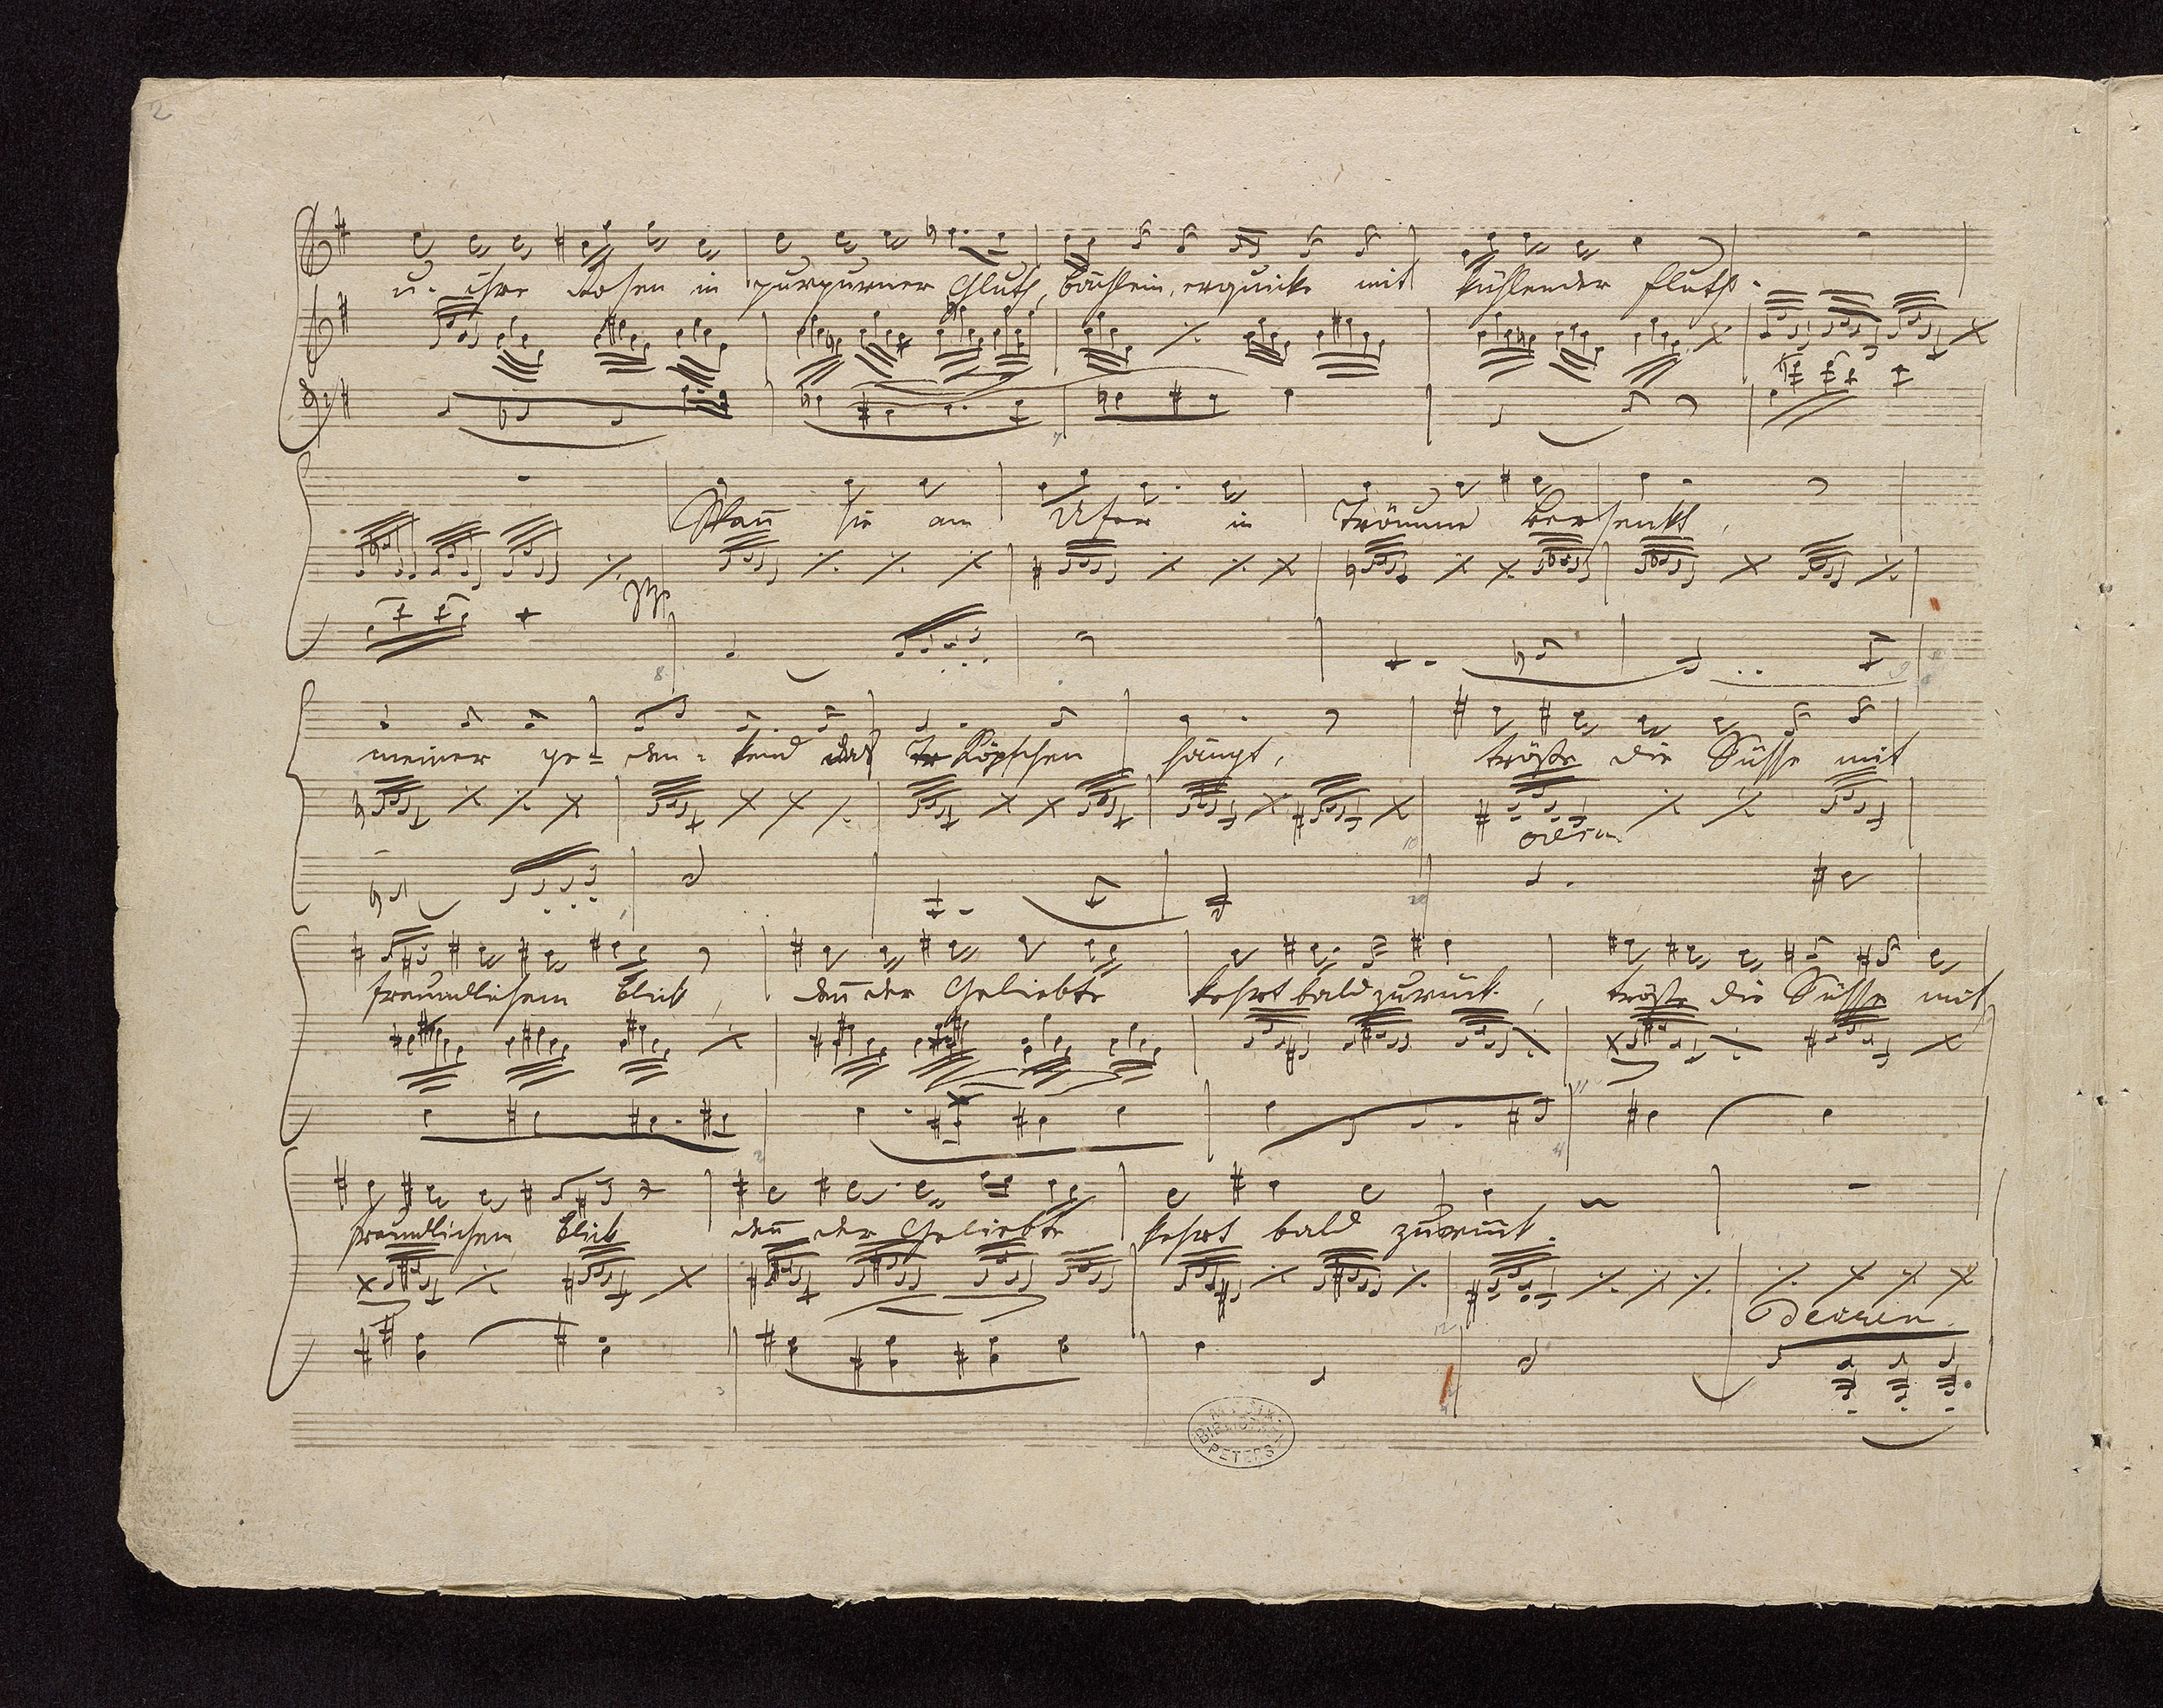 2
u. ihre Rosen in purpurner Gluth, bächlein, erquicke mit kühlender Fluth.
Wañ sie am Ufer in Träume versenkt,
pp
meiner ge= den= kend das Köpfchen hängt,
cresc
tröste die Süsse mit
freundlichem Blick, deñ der Geliebte kehrt bald zurück, tröste die Süsse mit
freundlichem Blick deñ der Geliebte kehrt bald zurück.
decresc.
MUSIK
BIBLIOTHEK
PETERS